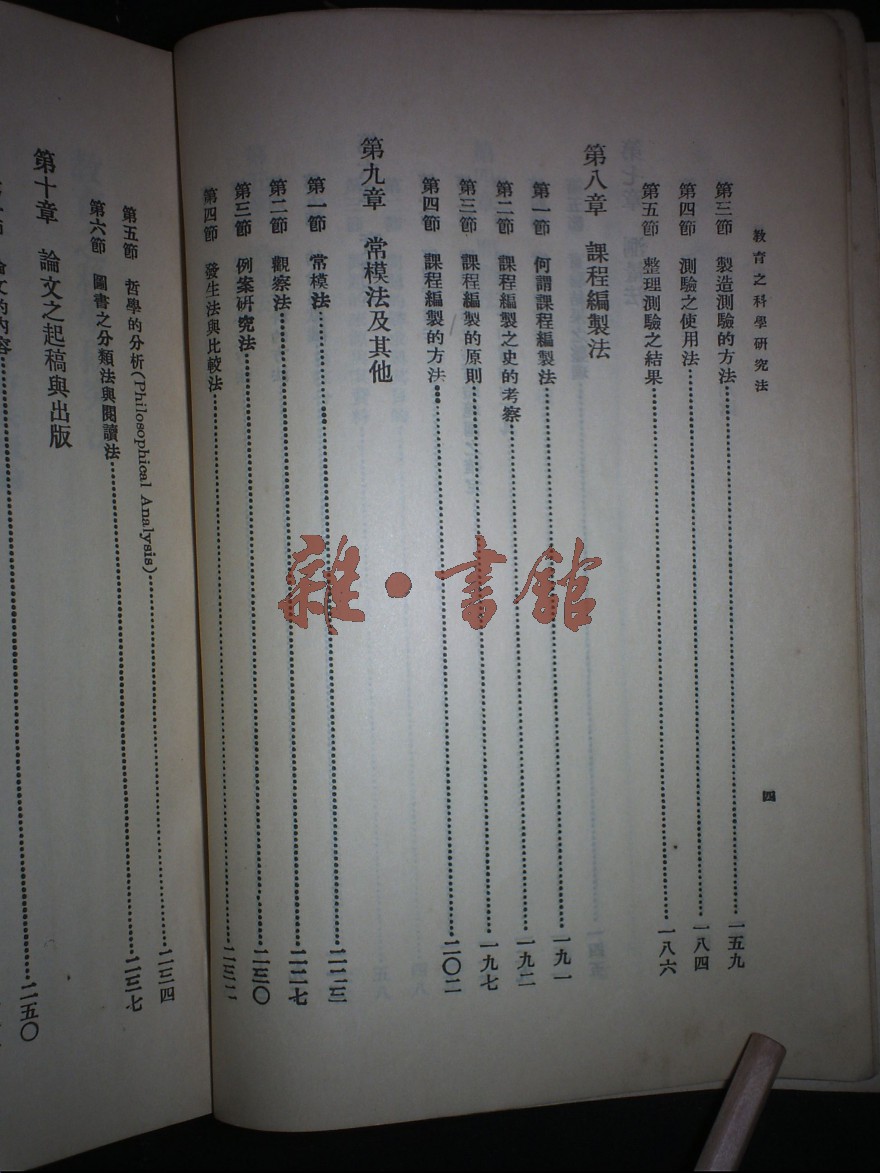 教育之科學研究法
四
第三節 製造測驗的方法 一五九
第四節 測驗之使用法 一八四
第五節 整理測驗之結果 一八六
第八章 課程編製法
第一節 何謂課程編製法 一九一
第二節 課程編製之史的考察 一九二
第三節 課程編製的原則 一九七
第四節 課程編製的方法 二〇二
第九章 常模法及其他
第一節 常模法 二二三
第二節 觀察法 二二七
第三節 例案研究法 二三〇
第四節 發生法與比較法 二三二
第五節 哲學的分析(Philosophical Analysis) 二三四
第六節 圖書之分類法與閱讀法 二三七
第十章 論文之起稿與出版
論文的內容 二五〇
雜·書館